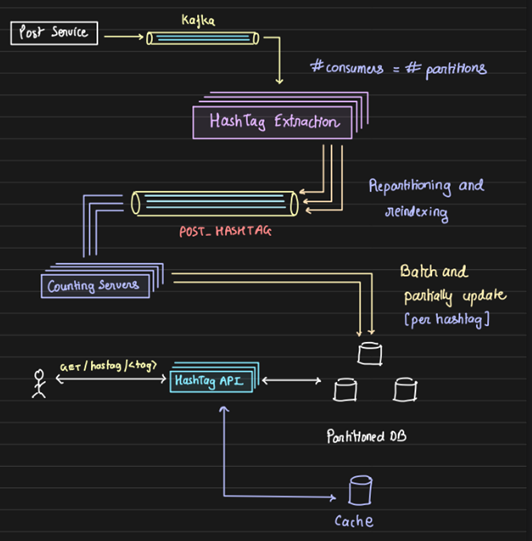 Kafka
Post Service
#consumers = # partitions
HashTag Extraction
Repartitioning and
reindexing
POST_HASHTAG
Counting Servers
Batch and
partially update
[per hashtag]
GET /hastag/<tag>
HashTag API
Partitioned DB
Cache